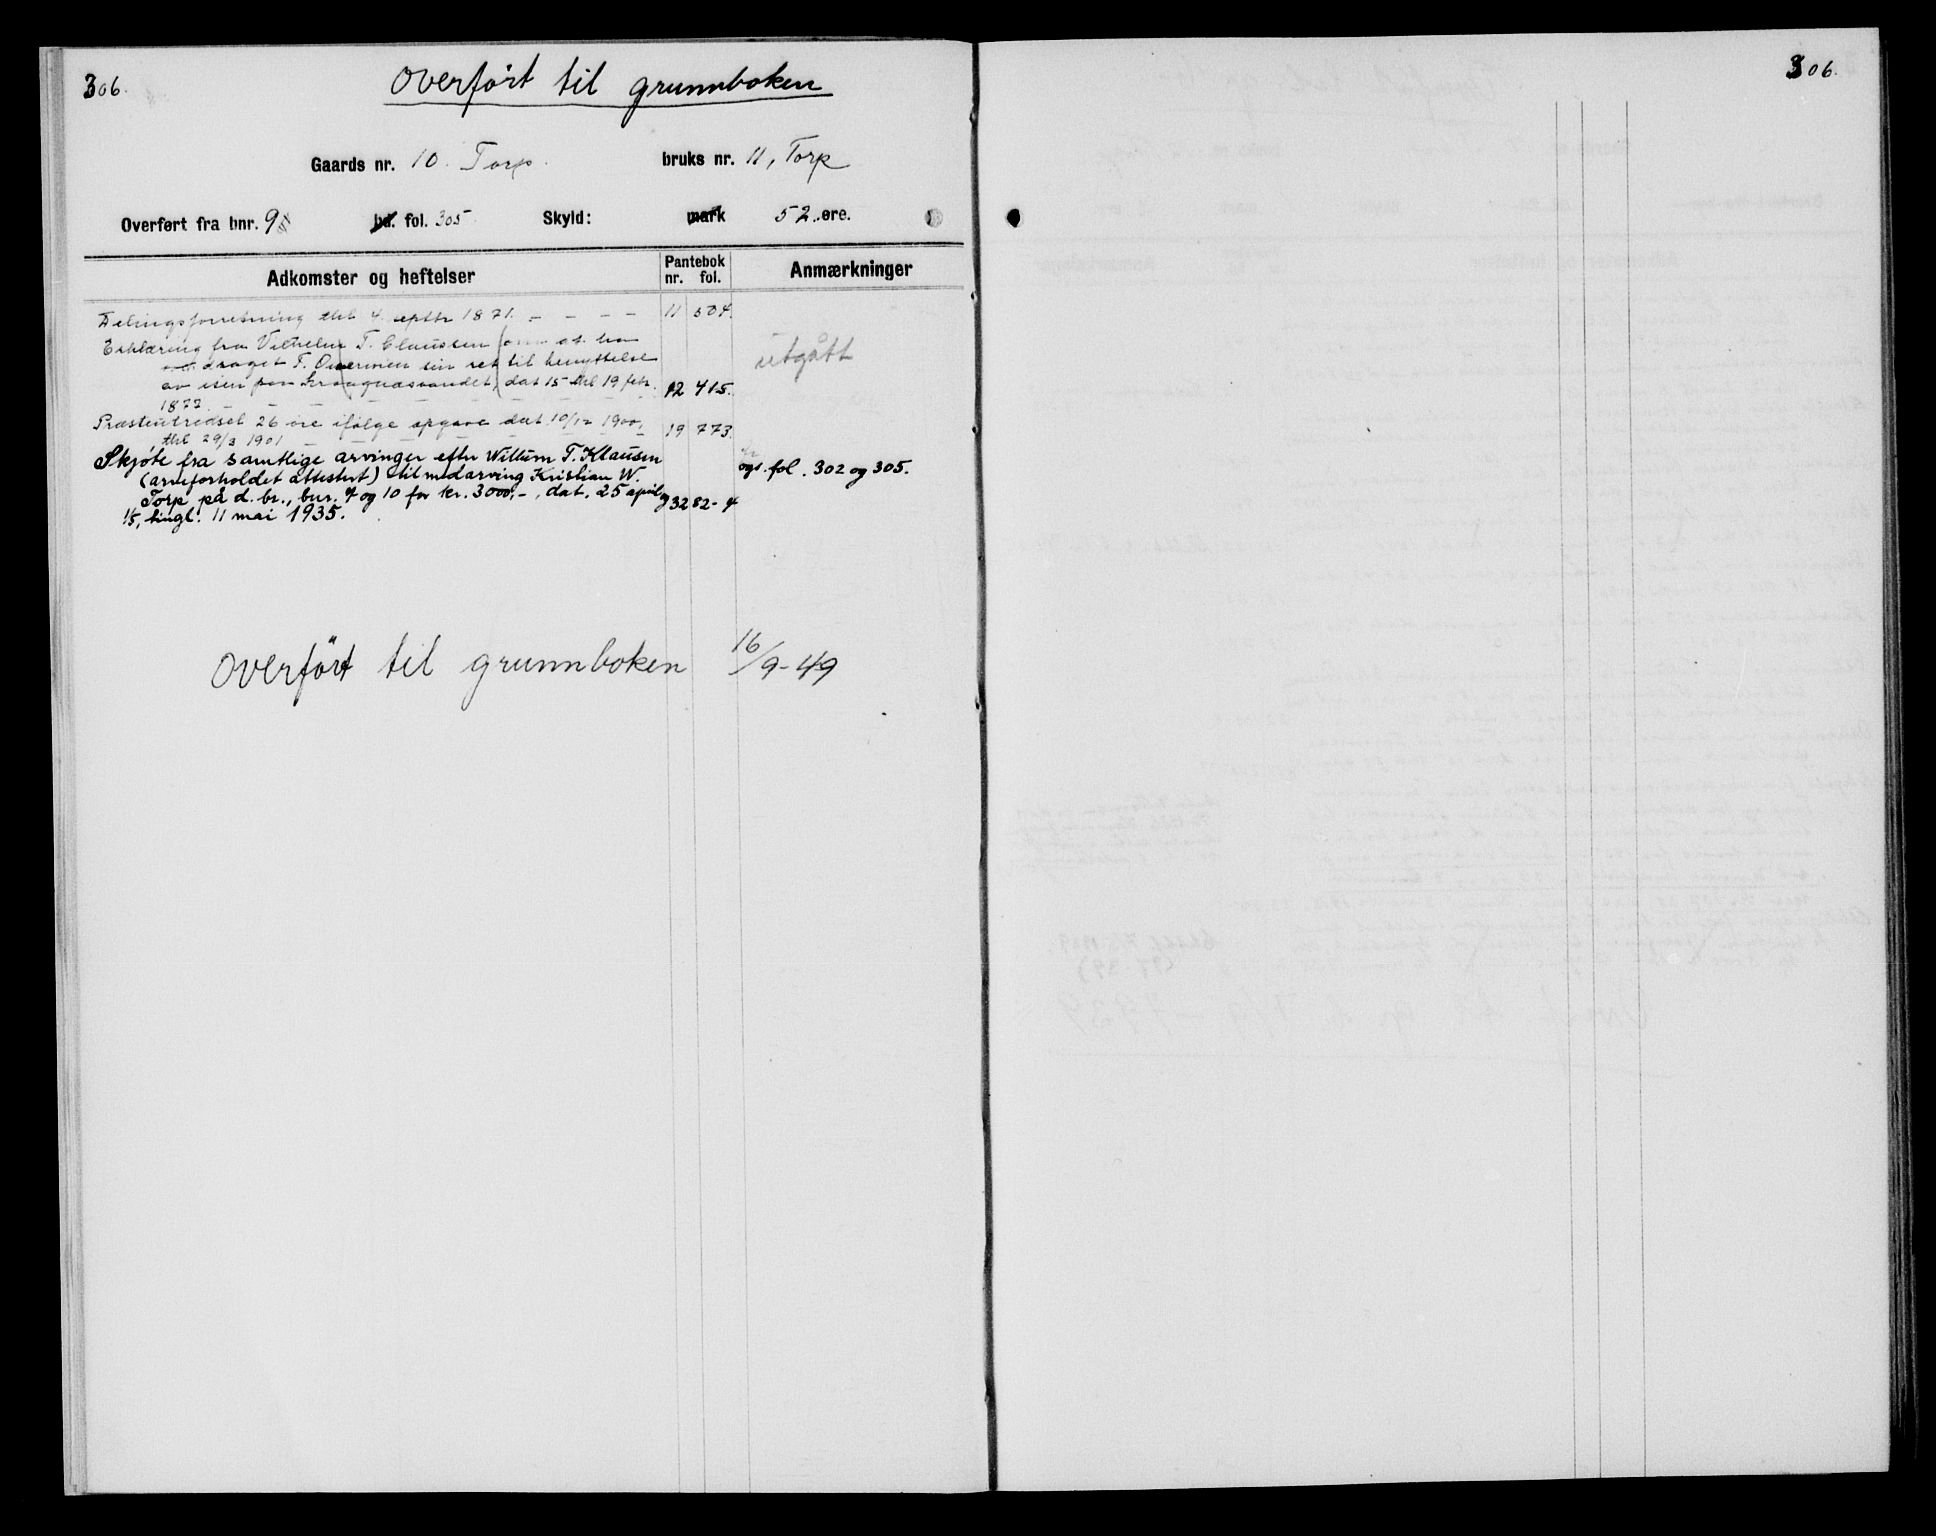 306.
Overført til grunnboken
Gaards nr. 10. Torp. bruks nr. 11, Torp
Overført fra bnr. 9 bd. fol. 305 Skyld: mark 52 øre.
Adkomster og heftelser Pantebok nr. fol. Anmærkninger
Delingsforretning thl 4. septbr 1871. – – – – 11 504.
Erklæring fra Vilhelm T. Claussen om at ha
draget T. sin ret til benyttelse utgått
av isen paa dat 15 thl 19 febr. 12 415.
1877. – – – – – –
Præsteutredsel 26 øre ifølge opgave dat. 10/12 1900,
thl 29/3 1901 – – – – – 19 773.
Skjøte fra samtlige arvinger efter Willum T. Klausen
(arveforholdet attestert) til medarving Kristian W. ogs. fol. 302 og 305.
Torp på d. br., bnr. 7 og 10 for kr. 3000,–, dat. 25 april og 32 82-4
1/5, tingl. 11 mai 1935.
Overført til grunnboken 16/9-49
306.